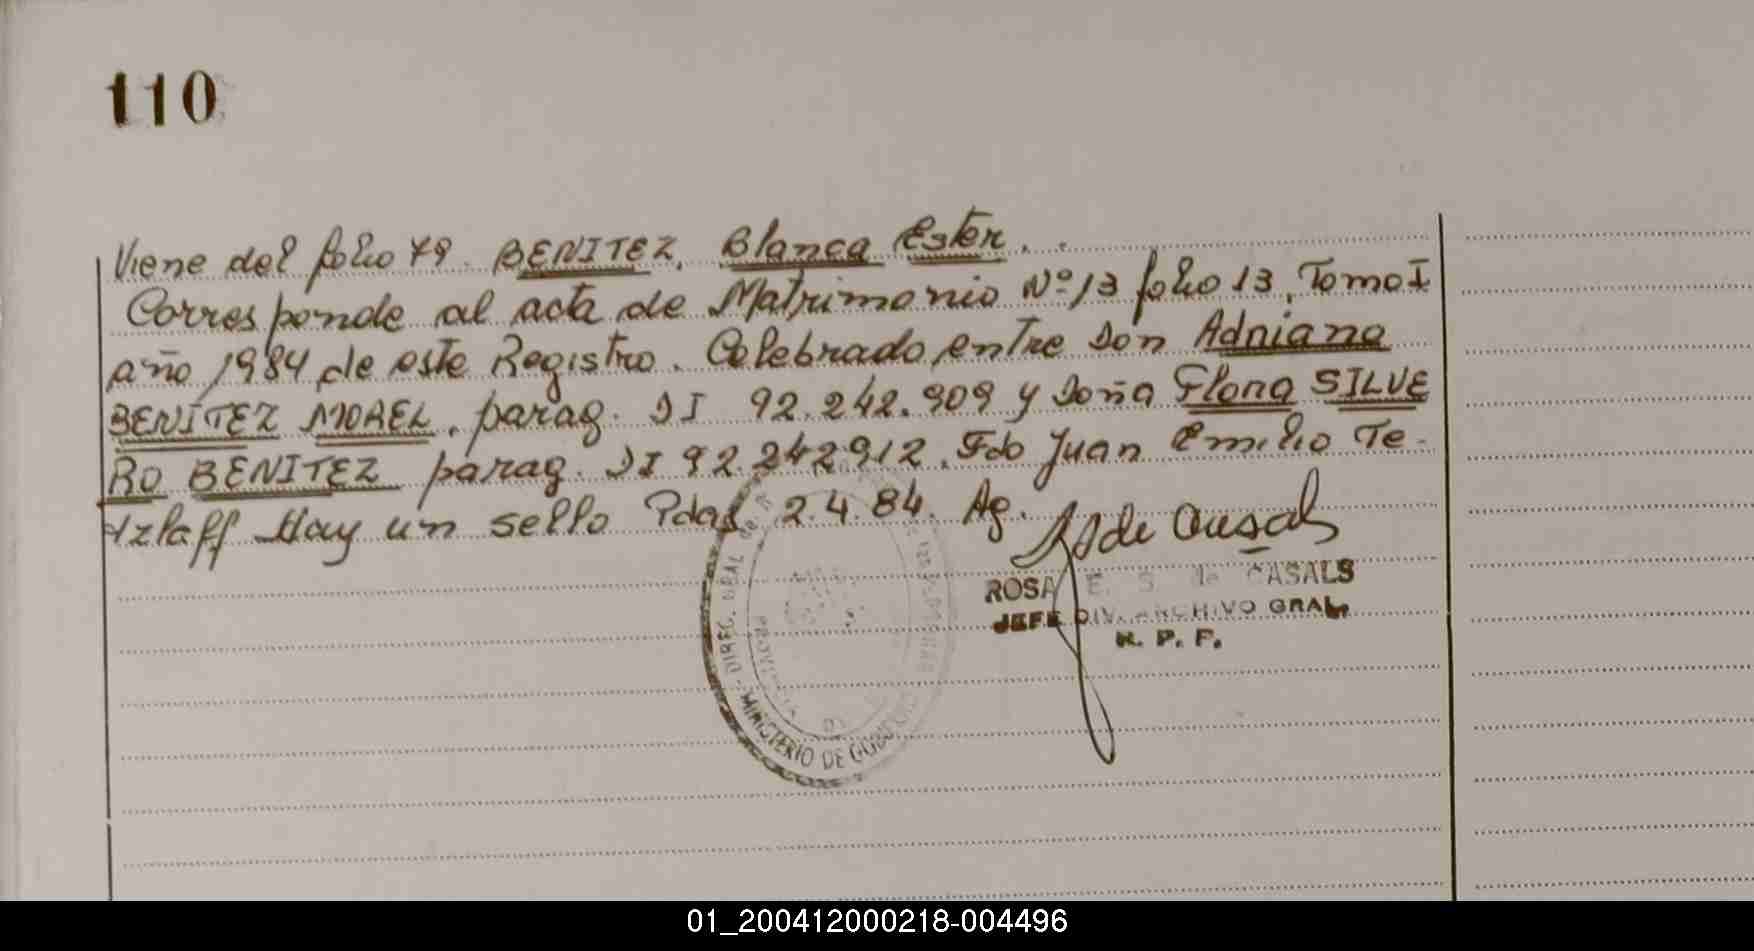 110
Viene del folio 79. BENITEZ, Blanca Ester. .
Corresponde al acta de Matrimonio Nº 13 folio 13, Tomo I
año 1984 de este Registro. Celebrado entre Don Adriano
BENITEZ MOREL, parag. DI 92.242.909 y Doña Flora SILVE
RO BENITEZ parag. DI 92.242912. Fdo Juan Emilio Te-
tzlaff Hay un sello Pdas 2.4.84. Ag.
ROSA E. S. de CASALS
JEFE DIV. ARCHIVO GRAL.
R. P. F.
DIREC. GRAL de
MINISTERIO DE GOBIERNO
01_200412000218-004496